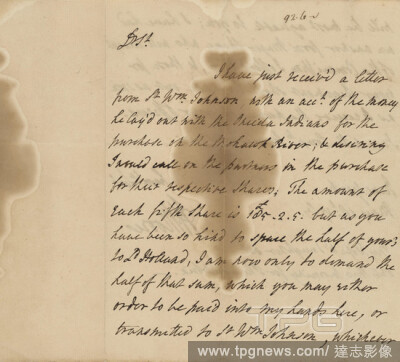 9260
Dr Sr.
I have just receiv'd a letter
from Sr Wm. Johnson with an acct. of the money
he lay'd out with the Oneida Indians for the
purchase on the Mohawk River; & desiring
I would call on the partners in the purchase
for their respective Shares; The amount of
each fifth Share is but as you
have been so kind to spare the half of yours
to Ld Holland, I am now only to demand the
half of that sum, which you may either
order to be paid into my hands here, or
transmitted to Sr Wm. Johnson, whichever
TPG
www.tpgnews.com / 達志影像